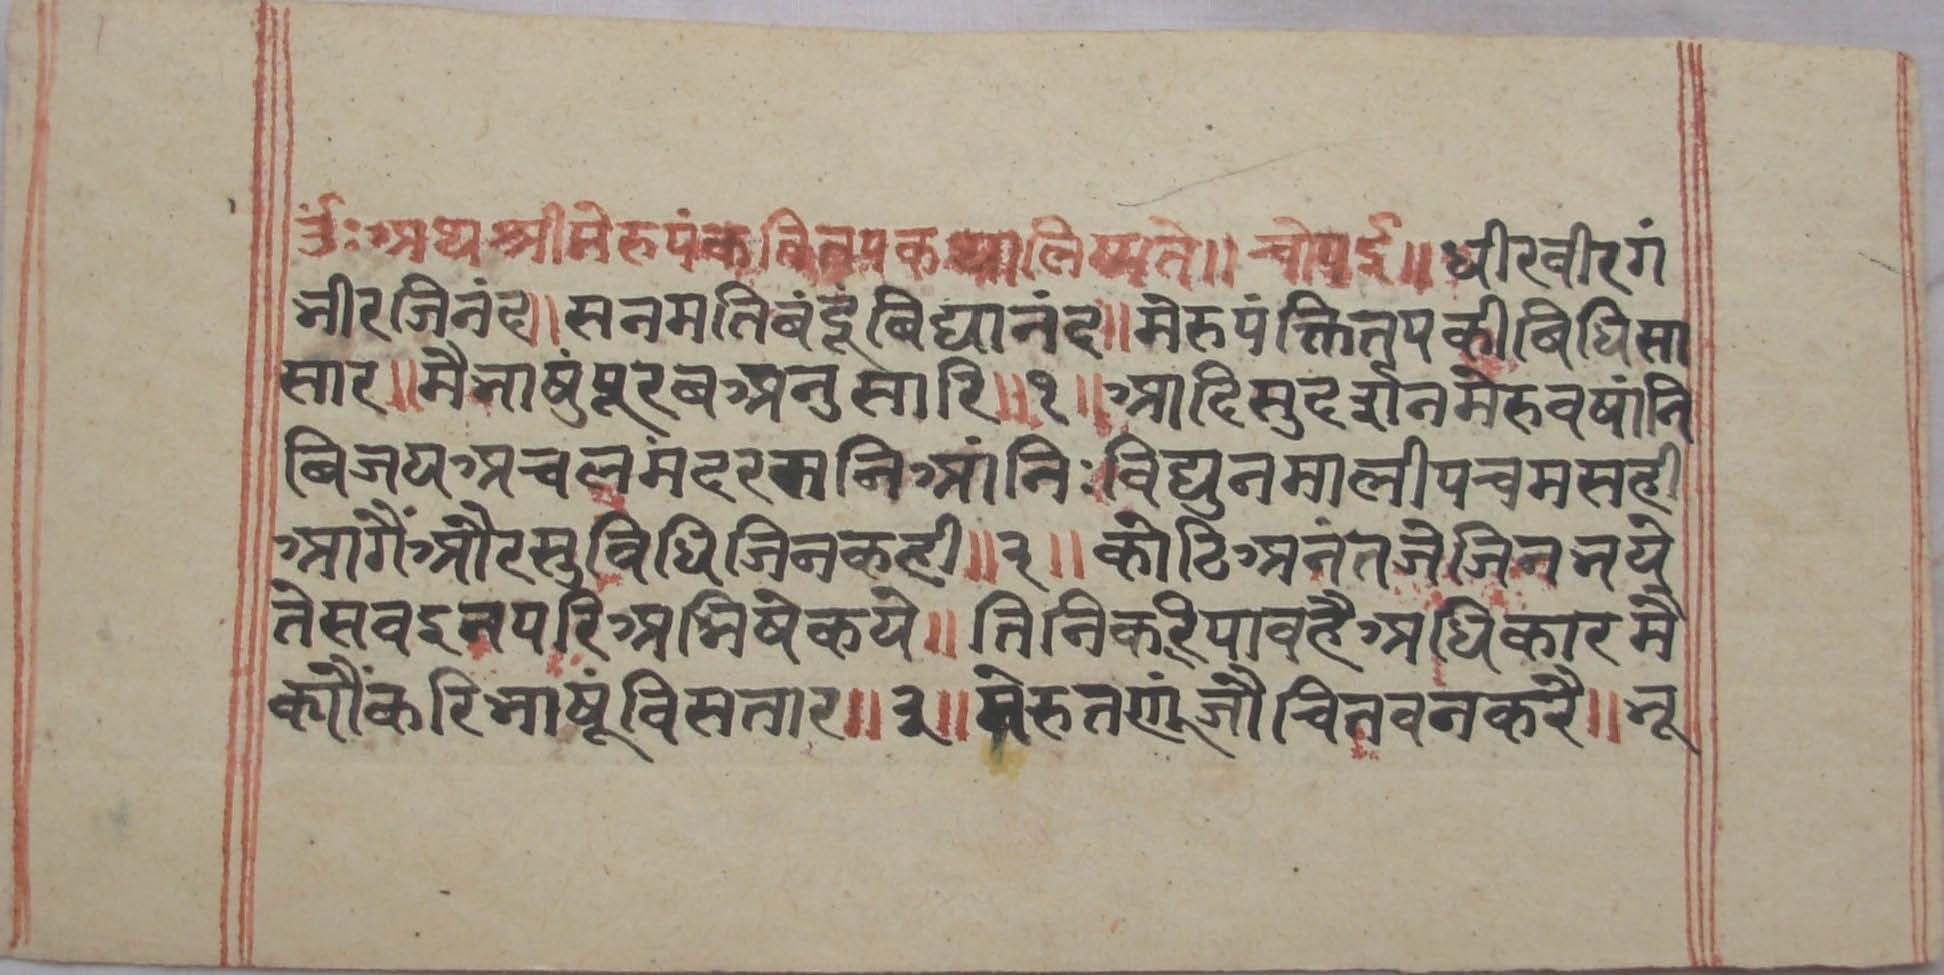 उँः अथ श्रीमेरुपंकतितपकथालिष्यते॥ चोपई॥ धीरवीरगं
भीरजिनंद॥ सनमतिबंदूंबिद्यानंद॥ मेरुपंक्तितपकीबिधिसा
सार॥ मैभाषुंपूरबअनुसारि॥१॥ आदिसुदर्शनमेरुवषांनि
बिजयअचलमंदरमनिआंनि: विद्युनमालीपचमसही
आगैंऔरसुविधिजिनकही॥२॥ कोटिअनंतजेजिनभये
तेसवइनपरिअभिषेकये॥ तिनिकरिपावहैअधिकारमै
क्यौंकरिभाषूंविसतार॥३॥ मेरुतणूंजौचितवनकरै॥ भू